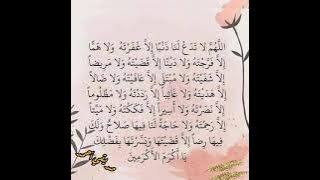 اللَّهُمَّ لا تَدَعْ لَنَا ذَنْبًا إِلاَّ غَفَرْتَهُ وَلا هَمًّا
إِلاَّ فَرَّجْتَهُ وَلا دَيْنًا إِلاَّ قَضَيْتَهُ وَلا مَرِيضاً
إِلاَّ شَفَيْتَهُ وَلا مُبْتَلًى إِلاَّ عَافَيْتَهُ وَلا ضَالاًّ
إِلاَّ هَدَيْتَهُ وَلا غَائِباً إِلاَّ رَدَدْتَهُ وَلا مَظْلُوماً
إِلاَّ نَصَرْتَهُ وَلا أَسِيراً إِلاَّ فَكَكْتَهُ وَلا مَيِّتاً
إِلاَّ رَحِمْتَهُ وَلا حَاجَةً لَنَا فِيهَا صَلاحٌ وَلَكَ
فِيهَا رِضاً إِلاَّ قَضَيْتَهَا وَيَسَّرْتَهَا بِفَضْلِكَ
يَا أَكْرَمَ الأَكْرَمِينَ